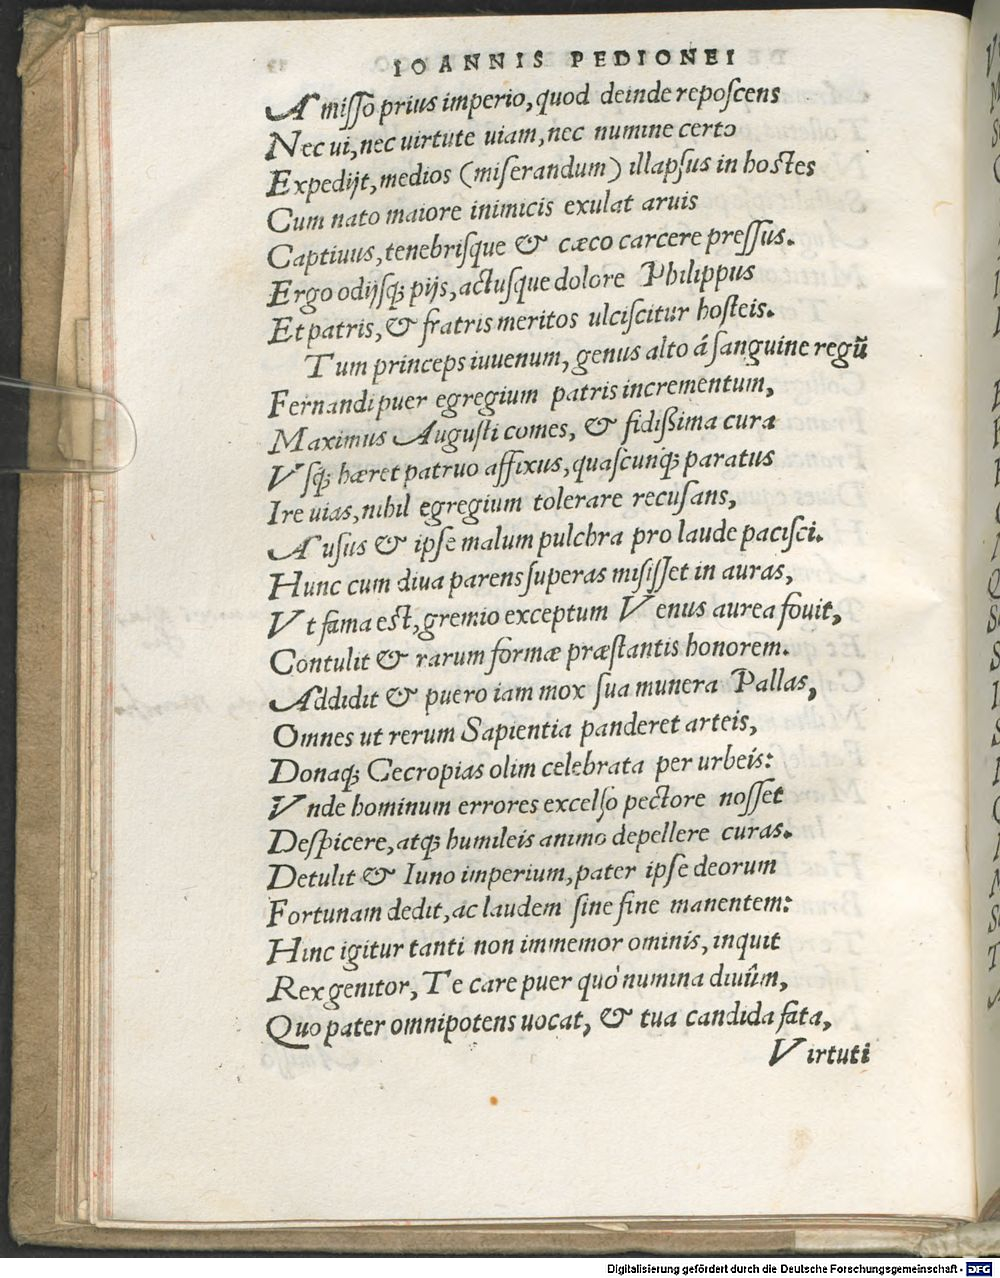 IOANNIS PEDIONEI
Amiſſo prius imperio, quod deinde repoſcens
Nec ui, nec uirtute uiam, nec numine certo
Expedijt, medios (miſerandum) illapſus in hoſtes
Cum nato maiore inimicis exulat aruis
Captiuus, tenebriſque & cæco carcere preſſus.
Ergo odijſq; pijs, actuſque dolore Philippus
Et patris, & fratris meritos ulciſcitur hoſteis.
Tum princeps iuuenum, genus alto á ſanguine regũ
Fernandi puer egregium patris incrementum,
Maximus Auguſti comes, & fidiſſima cura
Vſq; hæret patruo affixus, quaſcunq; paratus
Ire uias, nihil egregium tolerare recuſans,
Auſus & ipſe malum pulchra pro laude paciſci.
Hunc cum diua parens ſuperas miſiſſet in auras,
Vt fama eſt, gremio exceptum Venus aurea fouit,
Contulit & rarum formæ præſtantis honorem.
Addidit & puero iam mox ſua munera Pallas,
Omnes ut rerum Sapientia panderet arteis,
Donaq; Cecropias olim celebrata per urbeis:
Vnde hominum errores excelſo pectore noſſet
Deſpicere, atq; humileis animo depellere curas.
Detulit & Iuno imperium, pater ipſe deorum
Fortunam dedit, ac laudem ſine fine manentem:
Hinc igitur tanti non immemor ominis, inquit
Rex genitor, Te care puer quò numina diuûm,
Quo pater omnipotens uocat, & tua candida fata,
Virtuti
Digitalisierung gefördert durch die Deutsche Forschungsgemeinschaft - DFG